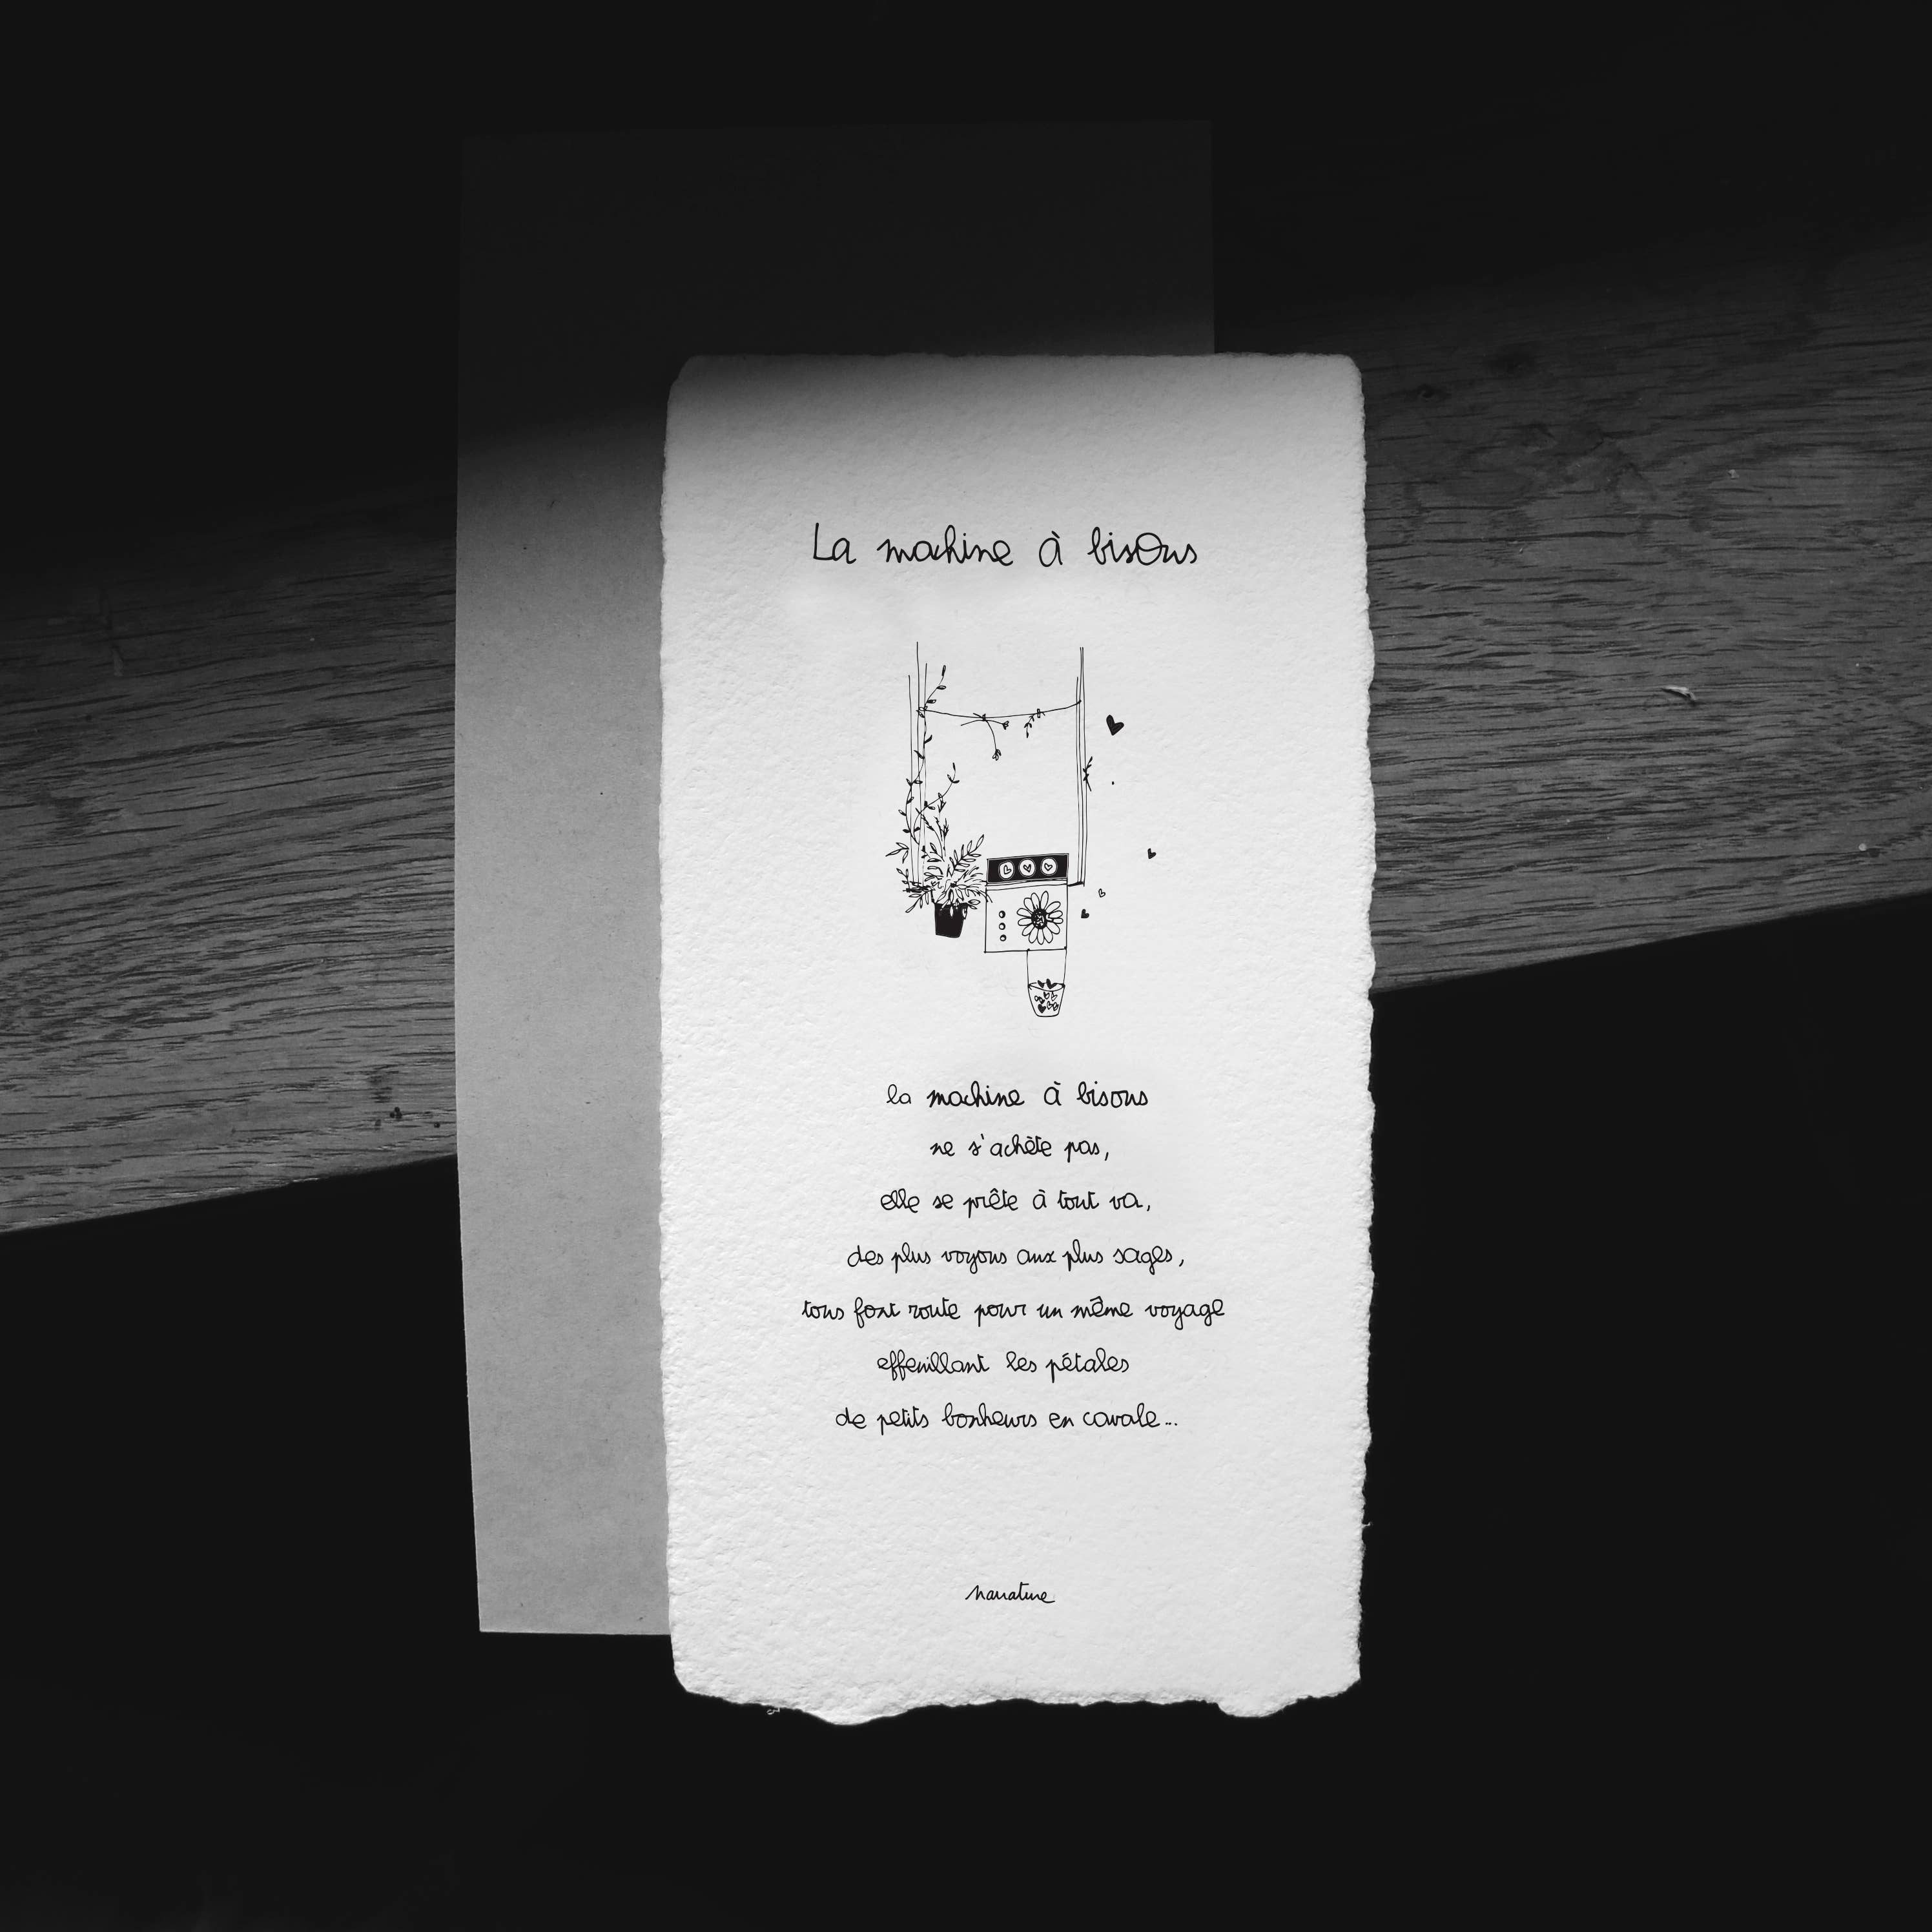 La machine à bisOus
la machine à bisous
ne s'achète pas,
elle se prête à tout va,
des plus voyous aux plus sages,
tous font route pour un même voyage
effeuillant les pétales
de petits bonheurs en cavale...